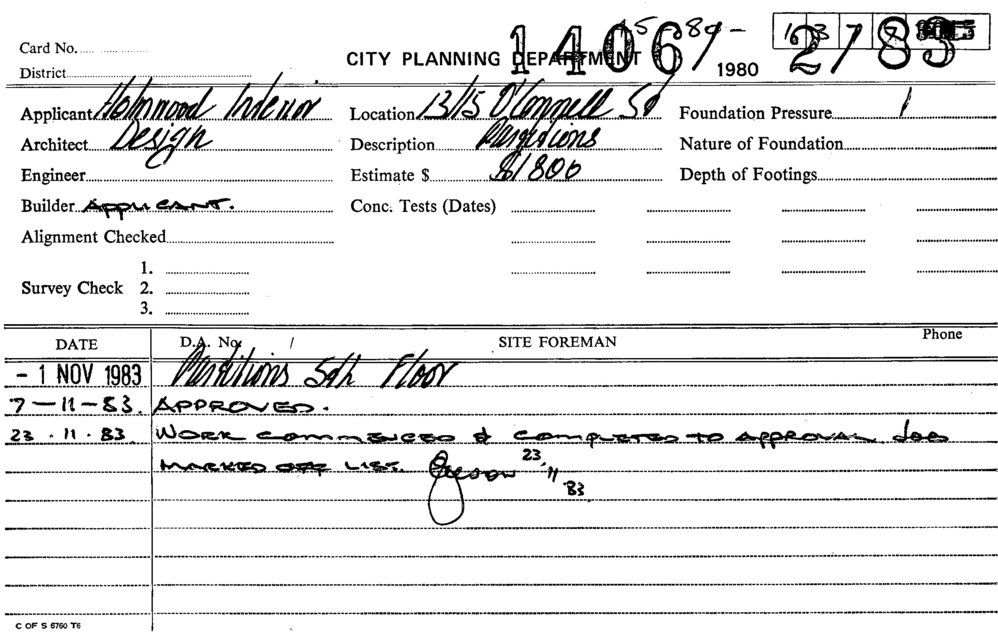 Card No.
CITY PLANNING DEPARTMENT 1980
14061 2783
District
Applicant Holmwood Interior Location 13/15 O'Connell St Foundation Pressure
Architect Design Description Partitions Nature of Foundation
Engineer Estimate $ $1800 Depth of Footings
Builder APPLICANT. Conc. Tests (Dates)
Alignment Checked
1.
Survey Check 2.
3.
DATE D.A. No. / SITE FOREMAN Phone
- 1 NOV 1983 Partitions 5th Floor
7-11-83. APPROVED.
23.11.83. WORK COMMENCED & COMPLETED TO APPROVAL JOB
MARKED OFF LIST. 23.11.83
C OF S 6760 T6